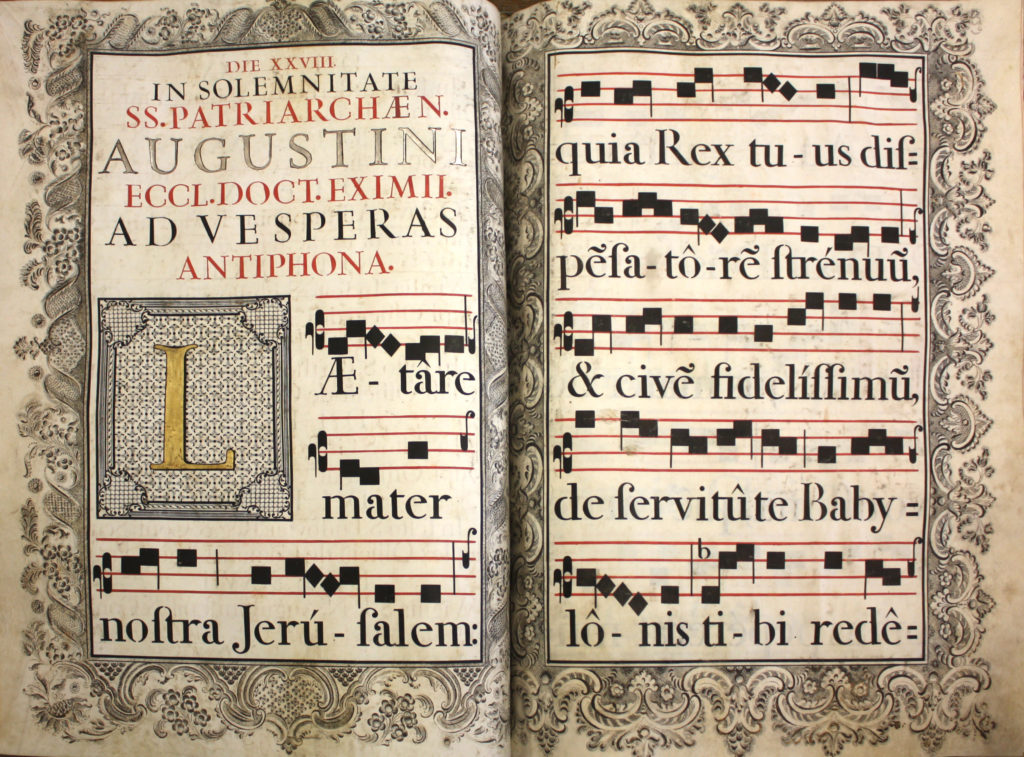 DIE XXVIII.
IN SOLEMNITATE
SS. PATRIARCHÆ N.
AUGUSTINI
ECCL. DOCT. EXIMII.
AD VESPERAS
ANTIPHONA.
LÆ - târe
mater
noſtra Jerú - ſalem:
quia Rex tu - us diſ=
pẽſa - tô - rẽ ſtrénuũ,
& civẽ fidelíſſimũ,
de ſervitûte Baby =
lô - nis ti - bi redê=